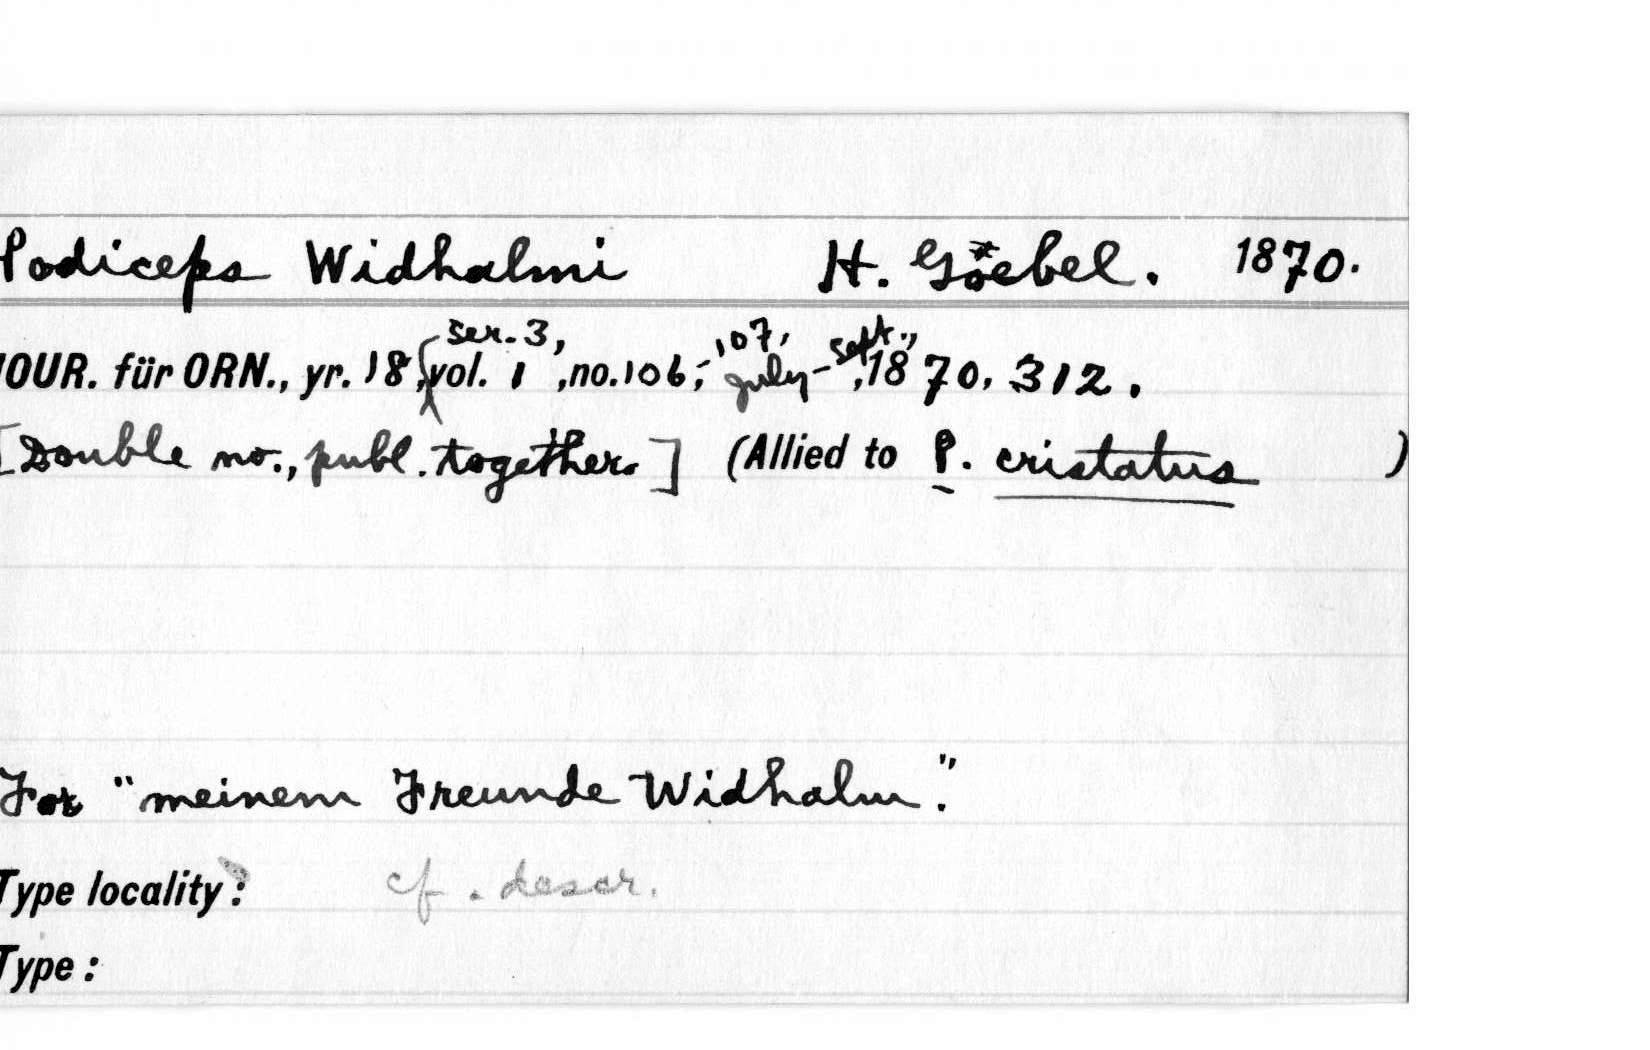 Podiceps Widhalmi H. Göebel. 1870.
JOUR. für ORN., yr. 18, ser. 3, vol. 1, no. 106, -107, July-Sept., 1870, 312.
[Double no., publ. together.] (Allied to P. cristatus )
For "meinem Freunde Widhalm."
Type locality: cf. descr.
Type: